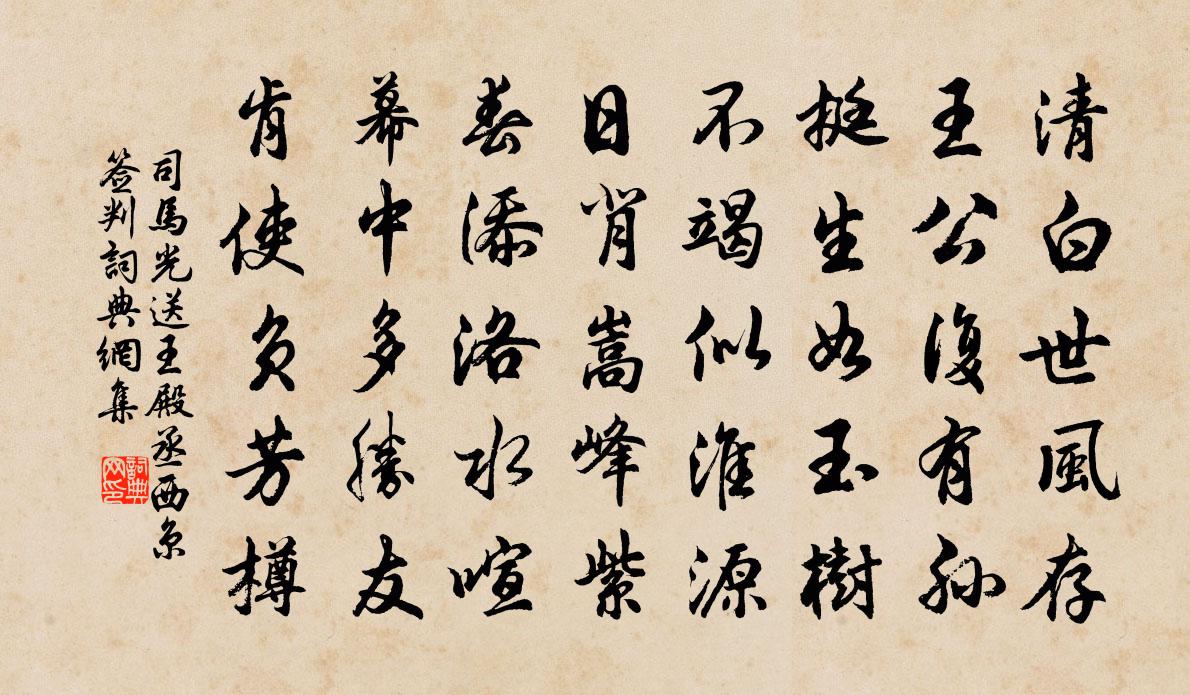 清白世風存
王公復有孫
挺生如玉樹
不竭似淮源
日肖嵩峰紫
春添洛水喧
幕中多勝友
肯使負芳樽
司馬光送王殿丞西京
簽判詞典網集
詞典
网印